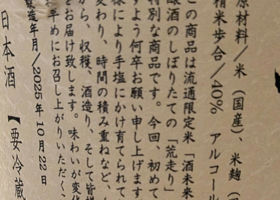 原材料/米(国産)、米麹(
精米歩合/40% アルコール
この商品は流通限定米「酒未来
醸酒のしぼりたての「荒走り」
特別な商品です。今回、初めて
すよう何卒お願い申し上げます
様により手塩にかけ育てられて
変わり、時間の積み重ねなど、
から、収穫、酒造り、そして皆様
をお届け致します。味わいが変化
早めにお召し上がりいただく
製造年月/2025年10月22日
日本酒 【要冷蔵